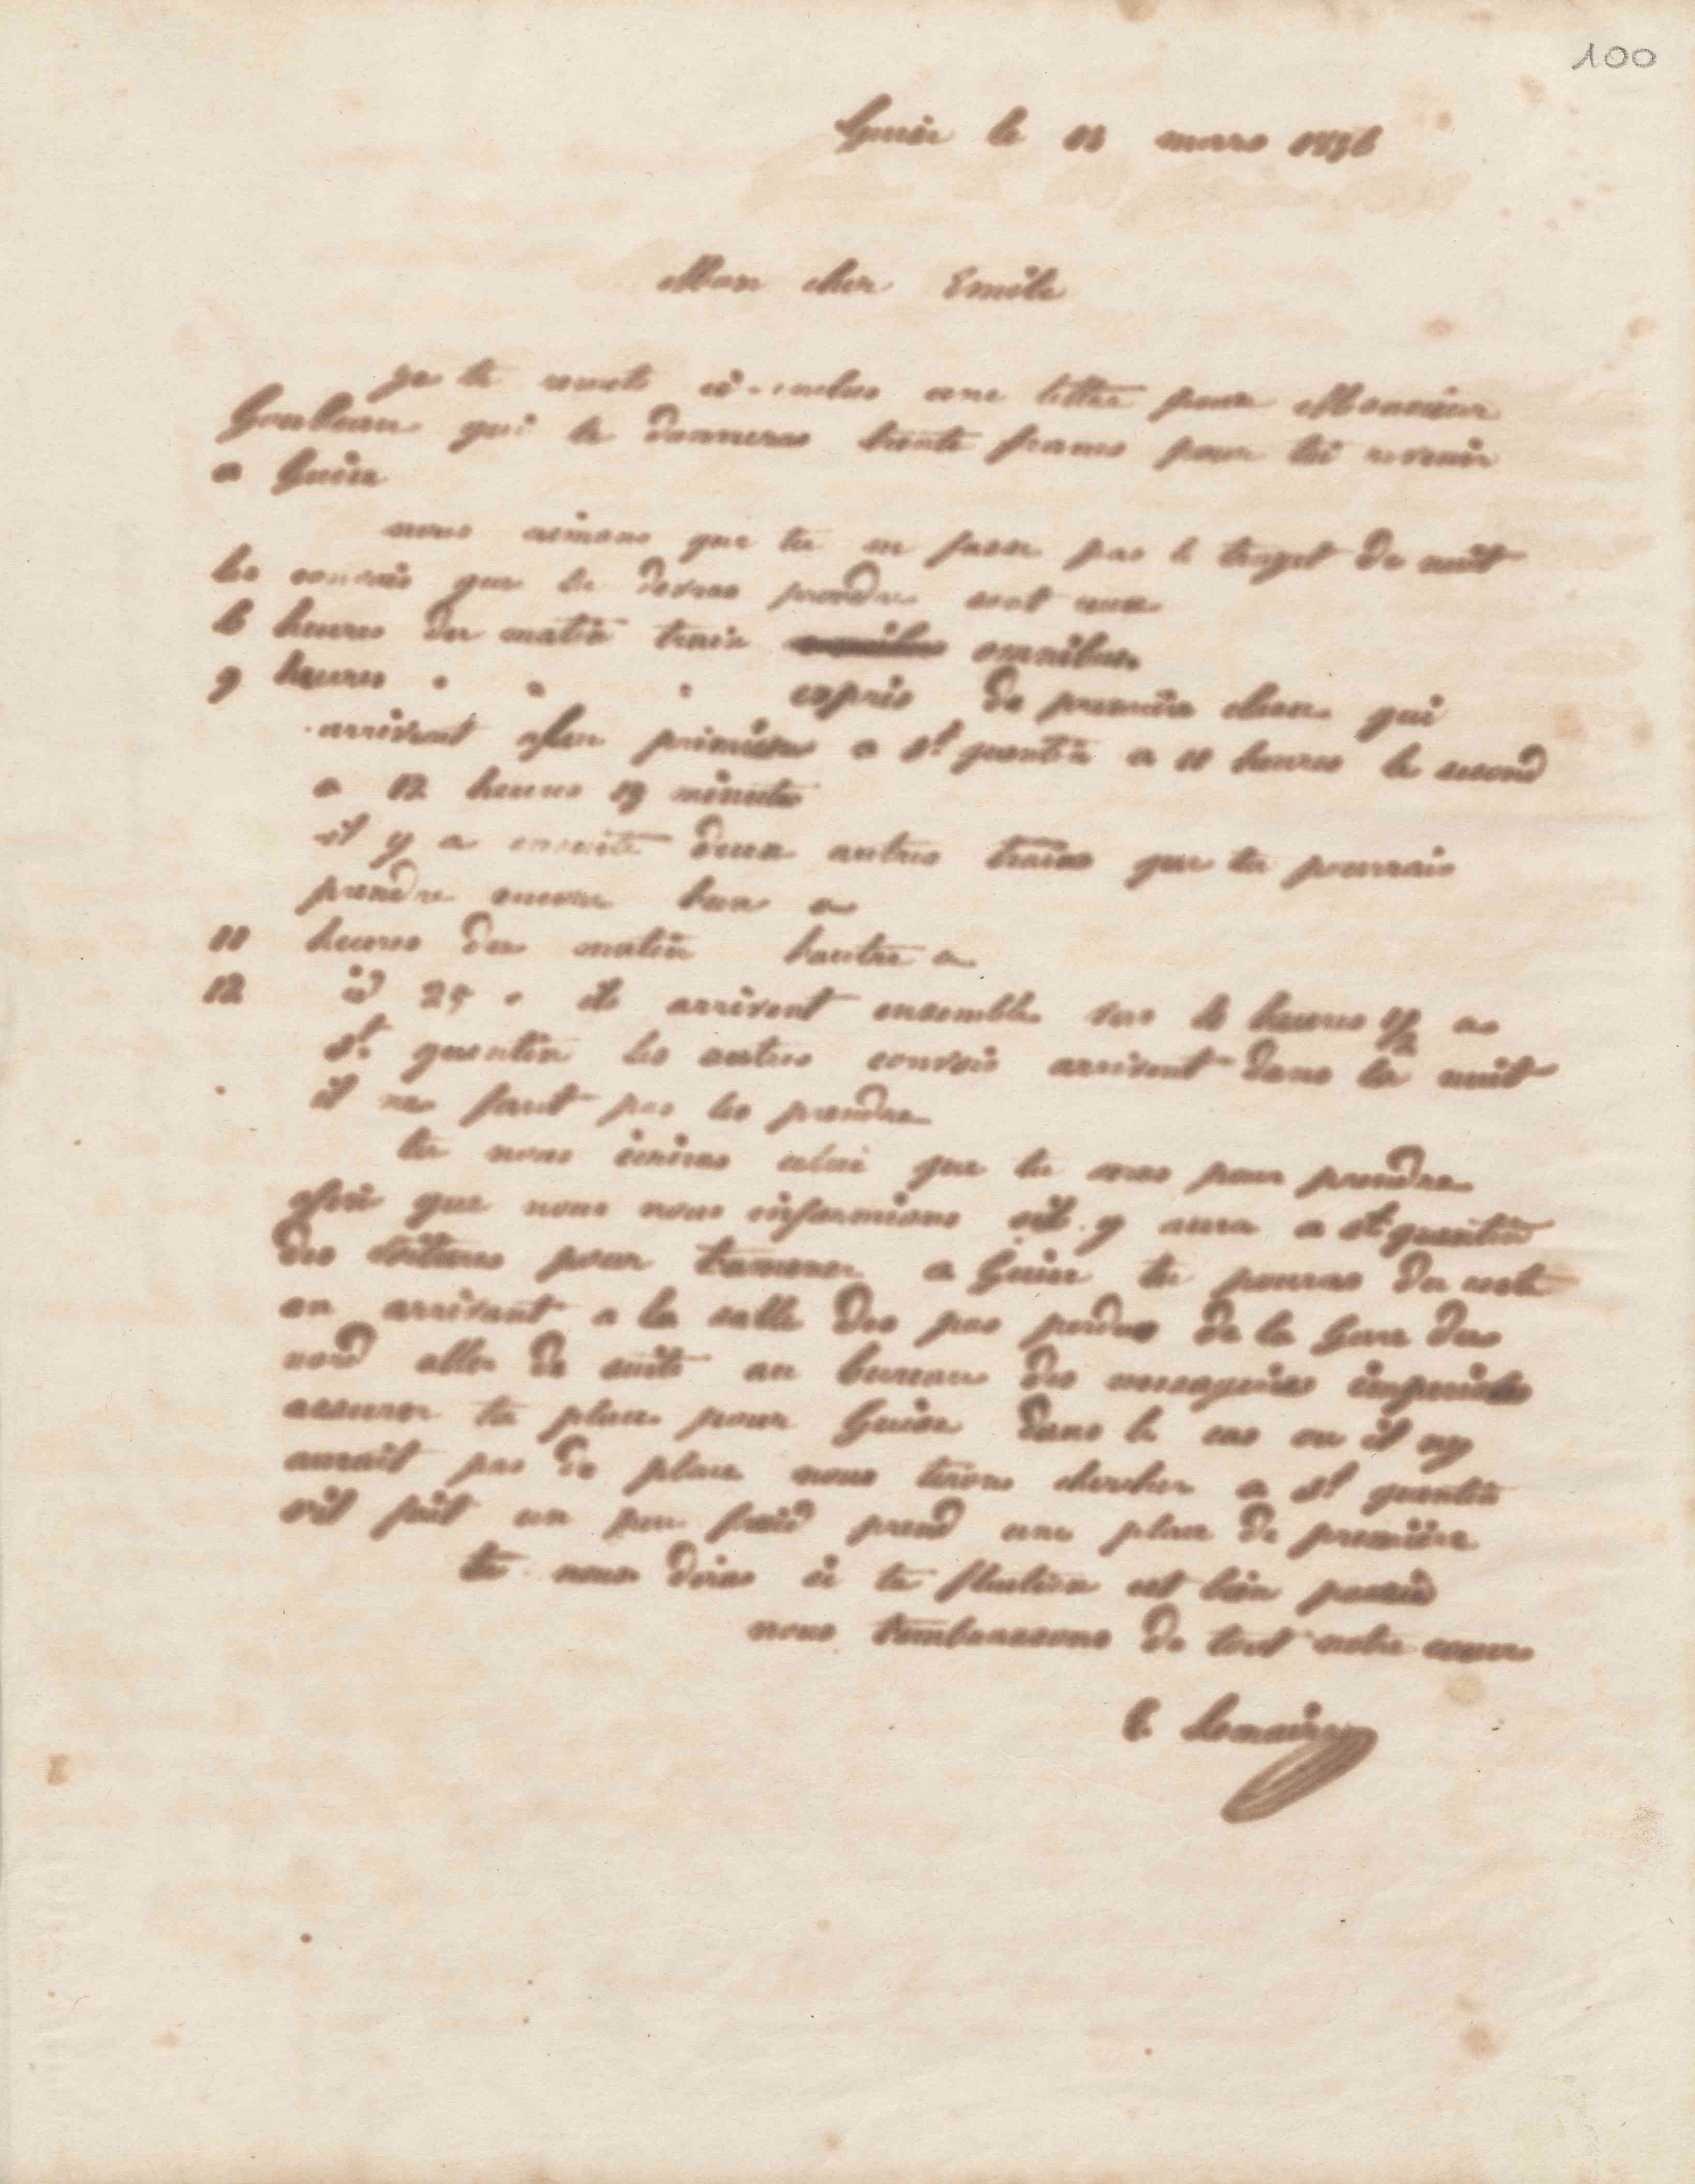 100
Guise le 18 mars 1856
Mon cher Emile
je te remets ci-inclus une lettre pour Monsieur
qui te donneras trente francs pour toi revenir
a Guise
nous aimons que tu ne fasse pas le trajet de nuit
les convois que tu devras prendre sont ceux
heures du matin train omnibus
9 heures " " " expres de premiere classe qui
arrivent premiers a St quentin a 11 heures le second
a 12 heures 19 minutes
il y a ensuite deux autres trains que tu pourrais
prendre encore lun a
11 heures du matin lautre a
12 id 25 " ils arrivent ensemble vers 4 heures 1/2 a
St quentin les autres convois arrivent dans la nuit
il ne faut pas les prendre
tu nous ecriras celui que tu auras pour prendre
afin que nous nous informions sil y aura a St quentin
des voitures pour tamener a Guise tu pouras du reste
en arrivant a la salle des pas perdus de la Gare du
nord aller de suite au bureau des messageries imperiales
assurer ta place pour Guise dans le cas ou il ny
aurait pas de place nous tirons chercher a St quentin
sil fait un peu froid prend une place de premiere
tu nous diras si ta fluxion est bien passée
nous tembrassons de tout notre coeur
Lemaire